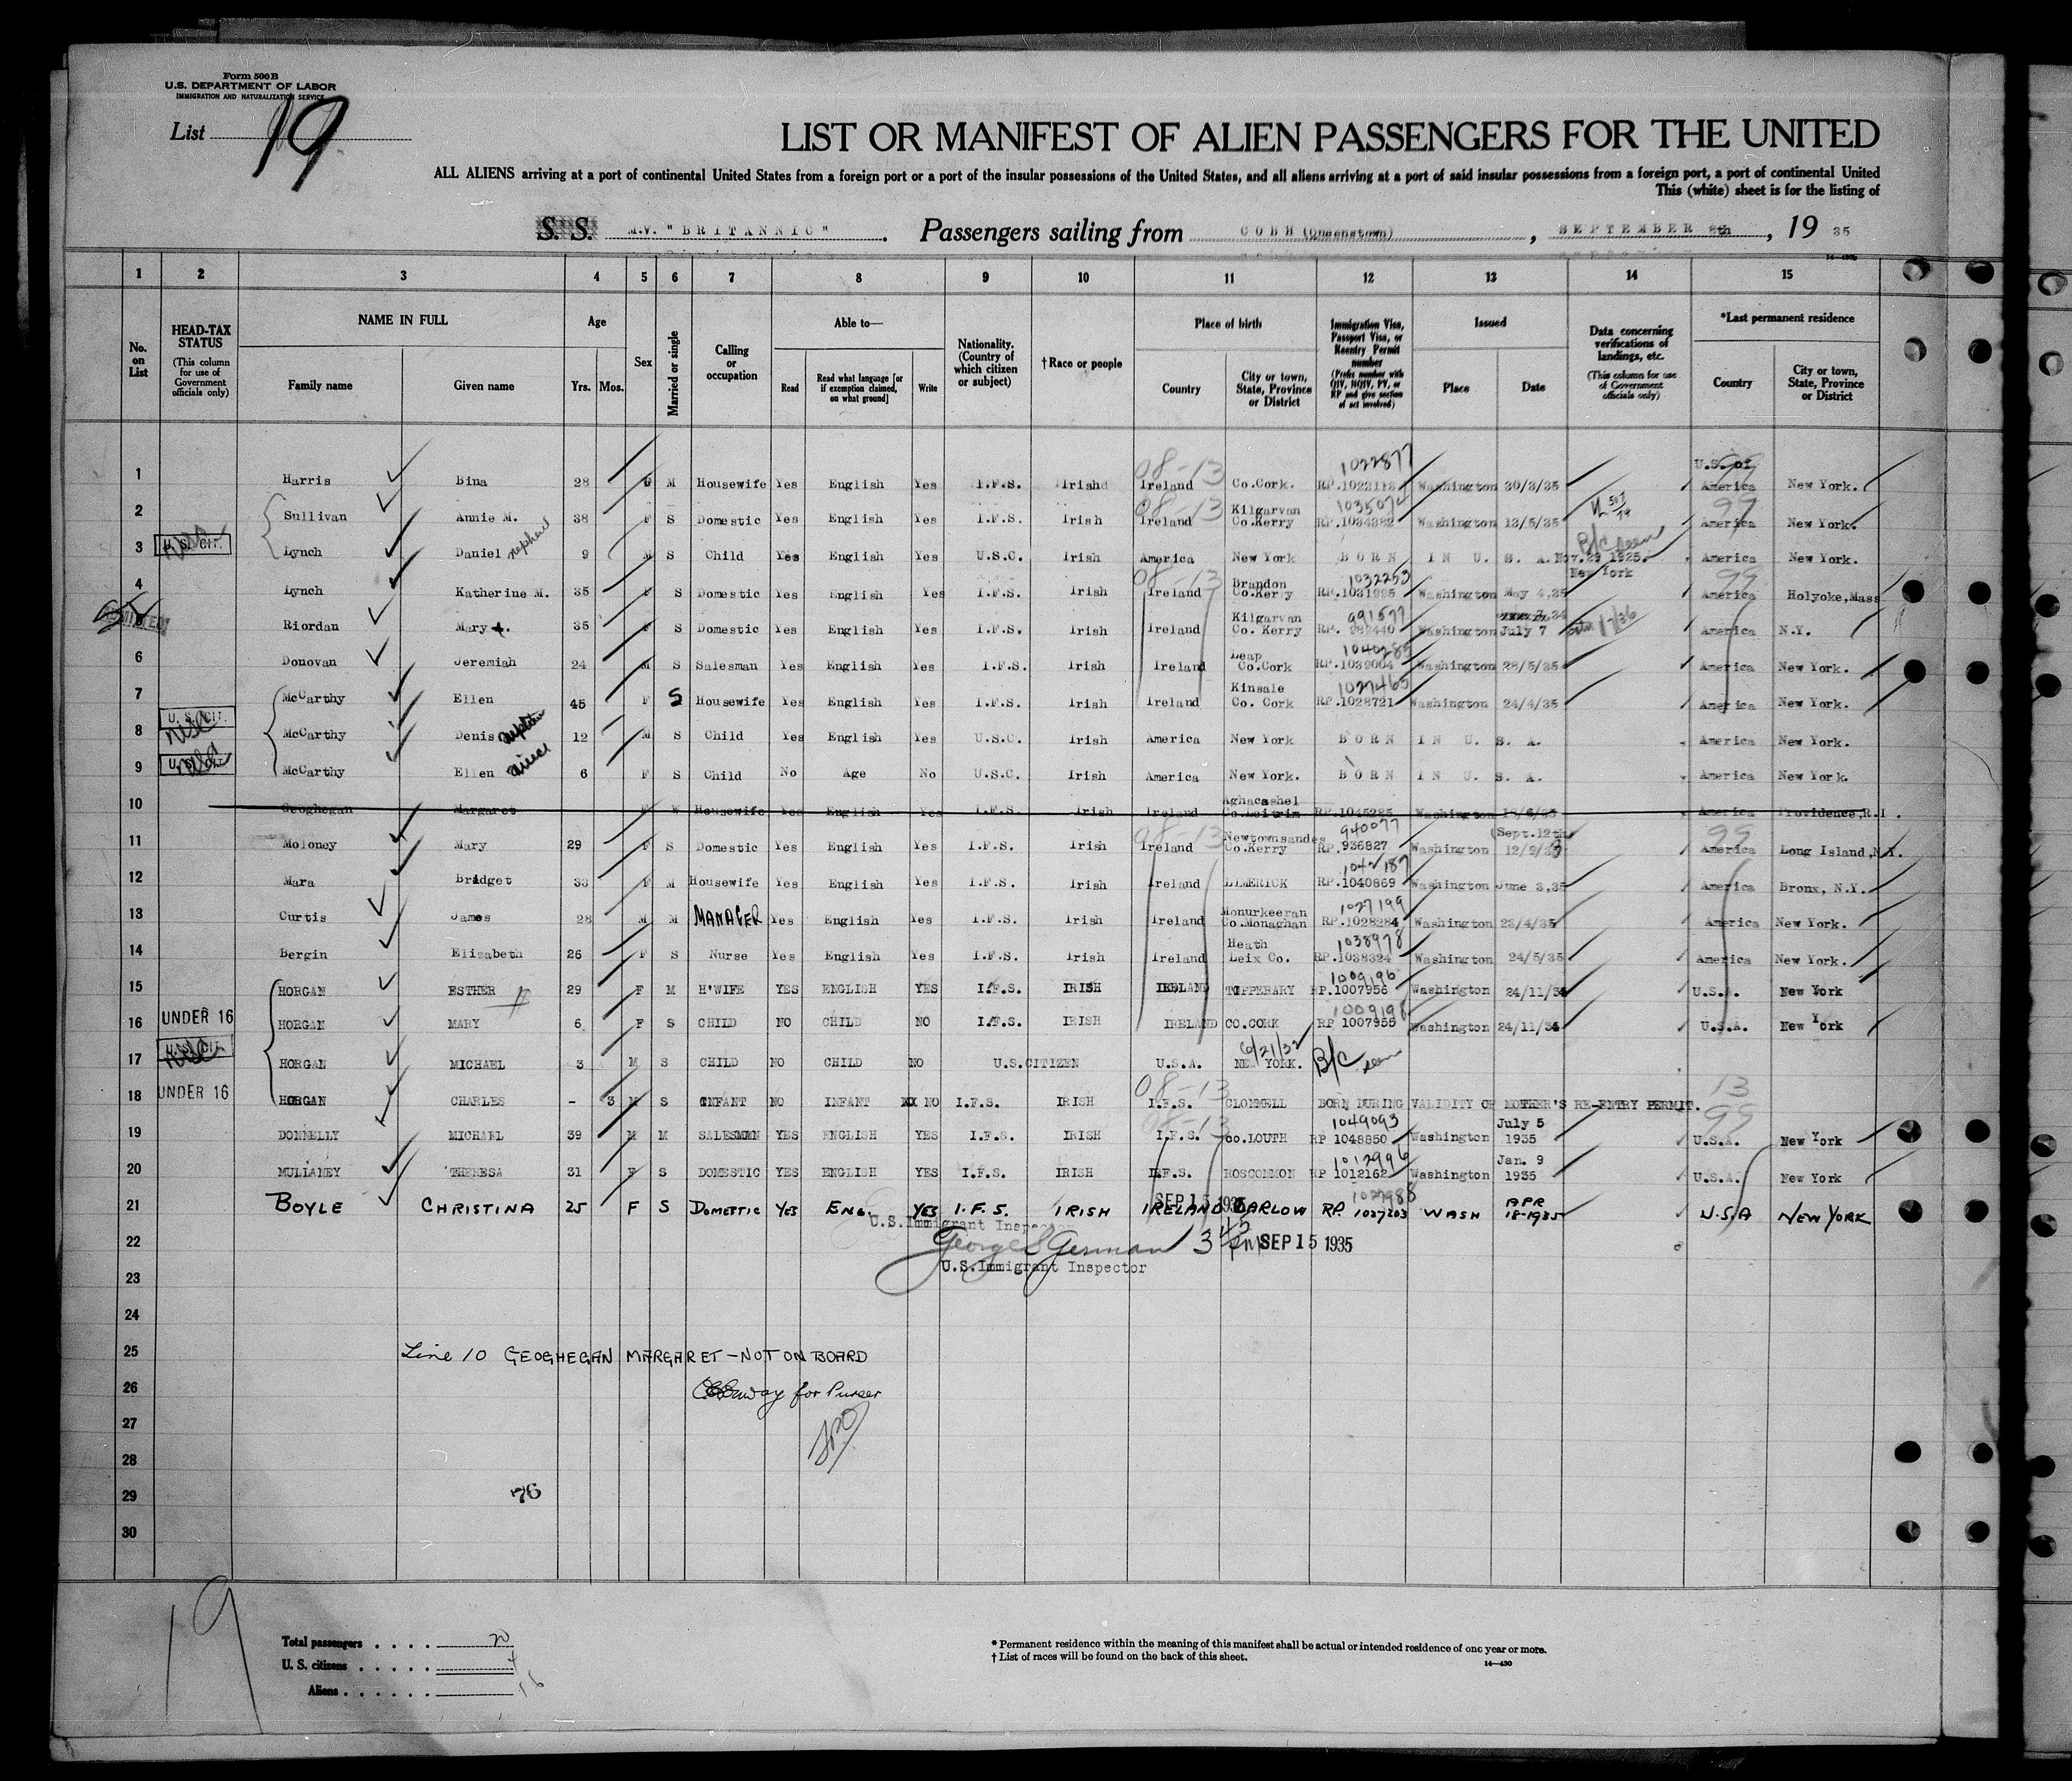 Form 500B
U.S. DEPARTMENT OF LABOR
IMMIGRATION AND NATURALIZATION SERVICE
List 19
LIST OR MANIFEST OF ALIEN PASSENGERS FOR THE UNITED
ALL ALIENS arriving at a port of continental United States from a foreign port or a port of the insular possessions of the United States, and all aliens arriving at a port of said insular possessions from a foreign port, a port of continental United
This (white) sheet is for the listing of
S. S. M.V. "BRITANNIC". Passengers sailing from COBH (Queenstown), SEPTEMBER 8th, 19 35
14—430
1 2 3 4 5 6 7 8 9 10 11 12 13 14 15
No. on List
HEAD-TAX STATUS (This column for use of Government officials only)
NAME IN FULL Family name Given name
Age Yrs. Mos.
Sex
Married or single
Calling or occupation
Able to— Read Read what language [or if exemption claimed, on what ground] Write
Nationality. (Country of which citizen or subject)
†Race or people
Place of birth Country City or town, State, Province or District
Immigration Visa, Passport Visa, or Reentry Permit number (Prefix number with QIV, NQIV, PV, or RP and give section of act involved)
Issued Place Date
Data concerning verifications of landings, etc. (This column for use of Government officials only)
*Last permanent residence Country City or town, State, Province or District
08-13 1022877 U.S. of 99
1 Harris Bina 28 F M Housewife Yes English Yes I.F.S. Irish Ireland Co.Cork. RP.1023118 Washington 30/3/35 America New York.
08-13 Kilgarvan 1035074 99
2 Sullivan Annie M. 38 F S Domestic Yes English Yes I.F.S. Irish Ireland Co.Kerry RP.1034382 Washington 13/5/35 America New York.
B/C seen
3 U.S. CIT. Lynch Daniel nephew 9 M S Child Yes English Yes U.S.C. Irish America New York BORN IN U. S. A. Nov.29 1925. New York America New York.
08-13 Brandon 1032253 99
4 Lynch Katherine M. 35 F S Domestic Yes English Yes I.F.S. Irish Ireland Co.Kerry RP.1031995 Washington May 4.35 America Holyoke,Mass
Kilgarvan 991577
ADMITTED Riordan Mary 35 F S Domestic Yes English Yes I.F.S. Irish Ireland Co. Kerry RP. 989440 Washington July 7 1/36 America N.Y.
Leap 1040285
6 Donovan Jeremiah 24 M S Salesman Yes English Yes I.F.S. Irish Ireland Co.Cork RP.1039004 Washington 28/5/35 America New York.
Kinsale 1027465
7 McCarthy Ellen 45 F S Housewife Yes English Yes I.F.S. Irish Ireland Co. Cork RP.1028721 Washington 24/4/35 America New York.
8 U.S. CIT. McCarthy Denis nephew 12 M S Child Yes English Yes U.S.C. Irish America New York BORN IN U. S. A. America New York.
9 U.S. CIT. McCarthy Ellen niece 6 F S Child No Age No U.S.C. Irish America New York. BORN IN U. S. A. America New York.
Aghacashel
10 Geoghegan Margaret F W Housewife Yes English Yes I.F.S. Irish Ireland Co.Leitrim RP.1045285 Washington 18/6/35 America Providence,R.I.
08-13 Newtownsandes 940077 (Sept.12th 99
11 Moloney Mary 29 F S Domestic Yes English Yes I.F.S. Irish Ireland Co.Kerry RP.936827 Washington 12/9/33 America Long Island,N.Y.
1042187
12 Mara Bridget 33 F M Housewife Yes English Yes I.F.S. Irish Ireland LIMERICK RP.1040869 Washington June 3.35 America Bronx, N.Y.
Monurkeeran 1027199
13 Curtis James 28 M M MANAGER Yes English Yes I.F.S. Irish Ireland Co.Monaghan RP.1028284 Washington 23/4/35 America New York.
Heath 1038978
14 Bergin Elizabeth 26 F S Nurse Yes English Yes I.F.S. Irish Ireland Leix Co. RP.1038324 Washington 24/5/35 America New York.
1009196
15 HORGAN ESTHER 29 F M H'WIFE YES ENGLISH YES I.F.S. IRISH IRELAND TIPPERARY RP.1007956 Washington 24/11/34 U.S.A. New York
1009198
16 UNDER 16 HORGAN MARY 6 F S CHILD NO CHILD NO I.F.S. IRISH IRELAND CO.CORK RP 1007955 Washington 24/11/34 U.S.A. New York
6/21/32
17 U.S. CIT. HORGAN MICHAEL 3 M S CHILD NO CHILD NO U.S.CITIZEN U.S.A. NEW YORK. B/C seen
08-13 13
18 UNDER 16 HORGAN CHARLES - 3 M S INFANT NO INFANT NO I.F.S. IRISH I.F.S. CLONMELL BORN DURING VALIDITY OF MOTHER'S RE-ENTRY PERMIT.
08-13 1049093 July 5 99
19 DONNELLY MICHAEL 39 M M SALESMAN YES ENGLISH YES I.F.S. IRISH I.F.S. CO.LOUTH RP 1048850 Washington 1935 U.S.A. New York
1012996 Jan. 9
20 MULLANEY THERESA 31 F S DOMESTIC YES ENGLISH YES I.F.S. IRISH I.F.S. ROSCOMMON RP 1012162 Washington 1935 U.S.A. New York
SEP 15 1935 1027988
21 BOYLE CHRISTINA 25 F S DOMESTIC YES ENG. YES I.F.S. IRISH IRELAND CARLOW RP. 1027203 WASH APR 18-1935 U.S.A NEW YORK
U.S.Immigrant Inspector
22 George S German 3 45 PM SEP 15 1935
23 U.S.Immigrant Inspector
24
25 Line 10 GEOGHEGAN MARGARET—NOT ON BOARD
26 for Purser
27
28
29 76
30
19
Total passengers . . . . 20
U. S. citizens . . . . . 4
Aliens . . . . . . 16
* Permanent residence within the meaning of this manifest shall be actual or intended residence of one year or more.
† List of races will be found on the back of this sheet.
14—430